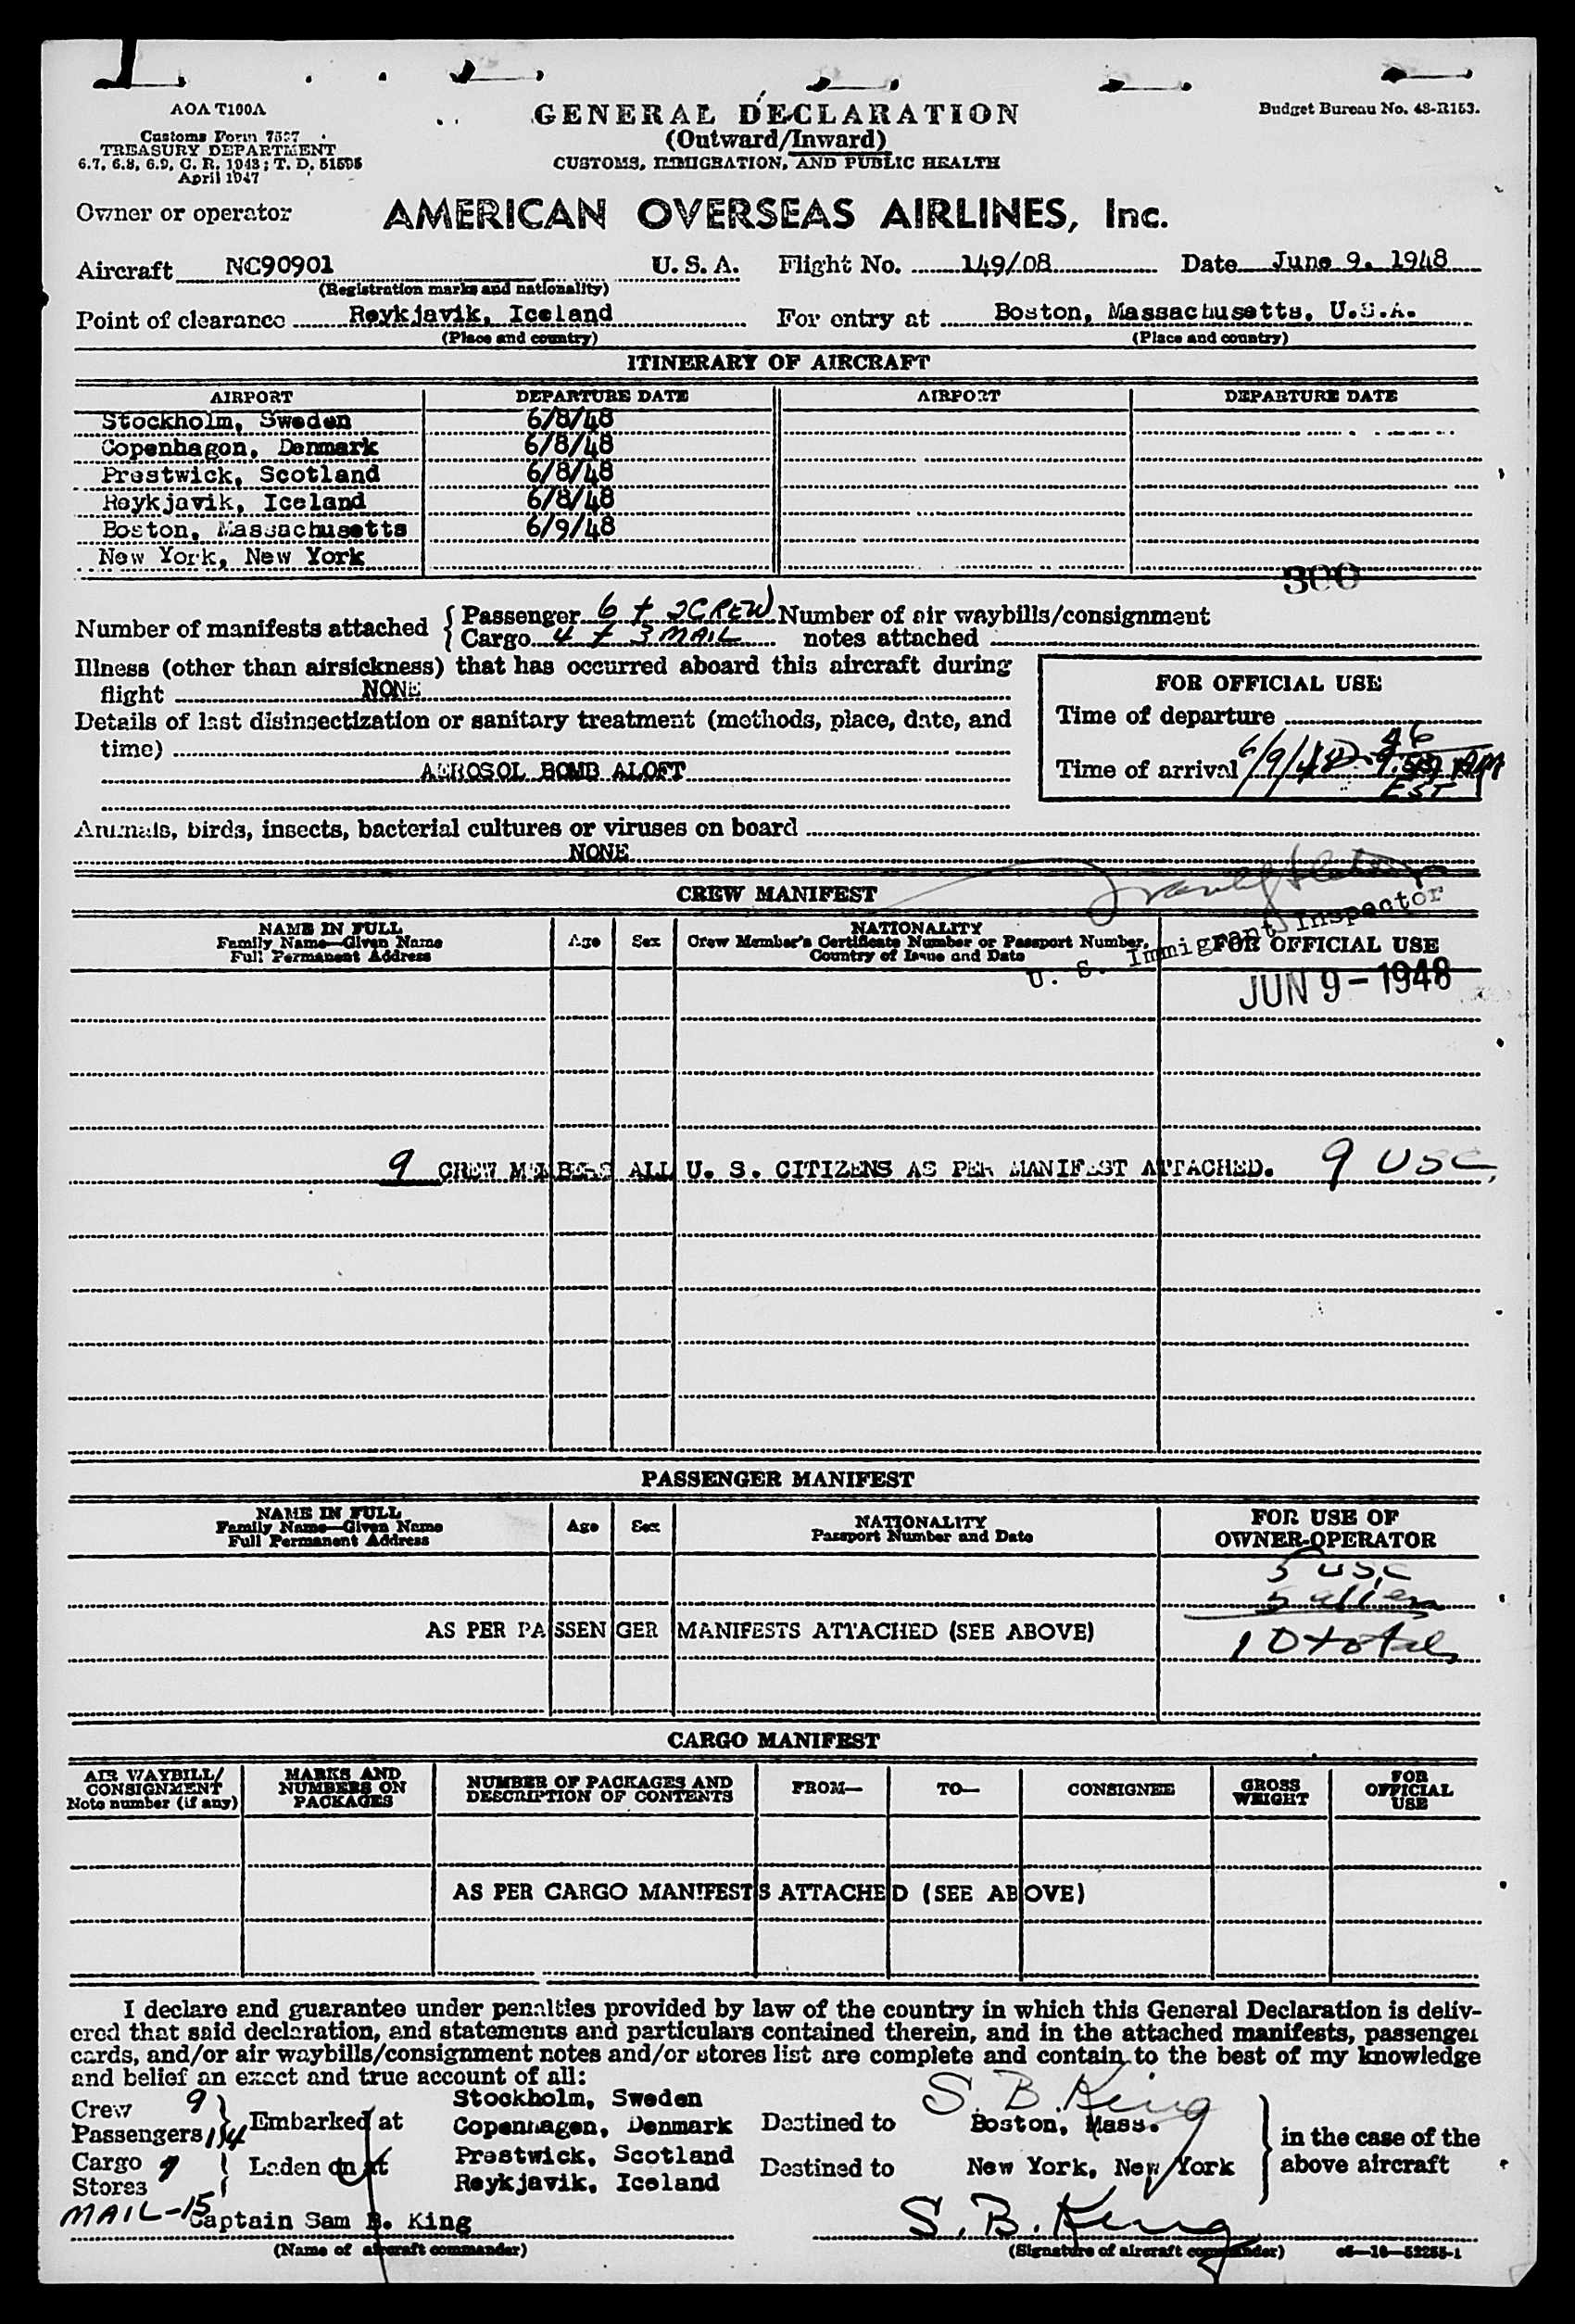 AOA T100A
Customs Form 7507
TREASURY DEPARTMENT
6.7, 6.8, 6.9, C. R. 1943; T. D. 51595
April 1947
GENERAL DECLARATION
(Outward/Inward)
CUSTOMS, IMMIGRATION, AND PUBLIC HEALTH
Budget Bureau No. 48-R153.
Owner or operator AMERICAN OVERSEAS AIRLINES, Inc.
Aircraft NC90901 U. S. A. Flight No. 149/08 Date June 9, 1948
(Registration marks and nationality)
Point of clearance Reykjavik, Iceland For entry at Boston, Massachusetts, U.S.A.
(Place and country) (Place and country)
ITINERARY OF AIRCRAFT
AIRPORT DEPARTURE DATE AIRPORT DEPARTURE DATE
Stockholm, Sweden 6/8/48
Copenhagen, Denmark 6/8/48
Prestwick, Scotland 6/8/48
Reykjavik, Iceland 6/8/48
Boston, Massachusetts 6/9/48
New York, New York
300
Number of manifests attached { Passenger 6 + 2 CREW Number of air waybills/consignment
Cargo 4 + 3 MAIL notes attached
Illness (other than airsickness) that has occurred aboard this aircraft during
flight NONE
Details of last disinsectization or sanitary treatment (methods, place, date, and
time)
AEROSOL BOMB ALOFT
FOR OFFICIAL USE
Time of departure
46
Time of arrival 6/9/48 AM
EST
Animals, birds, insects, bacterial cultures or viruses on board
NONE
CREW MANIFEST
NAME IN FULL
Family Name—Given Name
Full Permanent Address
Age Sex
NATIONALITY
Crew Member's Certificate Number or Passport Number,
Country of Issue and Date
FOR OFFICIAL USE
U. S. Immigrant Inspector
JUN 9 - 1948
9 CREW MEMBERS ALL U. S. CITIZENS AS PER MANIFEST ATTACHED. 9 USC
PASSENGER MANIFEST
NAME IN FULL
Family Name—Given Name
Full Permanent Address
Age Sex
NATIONALITY
Passport Number and Date
FOR USE OF
OWNER-OPERATOR
5 USC
5 alien
AS PER PASSENGER MANIFESTS ATTACHED (SEE ABOVE) 10 total
CARGO MANIFEST
AIR WAYBILL/
CONSIGNMENT
Note number (if any)
MARKS AND
NUMBERS ON
PACKAGES
NUMBER OF PACKAGES AND
DESCRIPTION OF CONTENTS
FROM— TO— CONSIGNEE
GROSS
WEIGHT
FOR
OFFICIAL
USE
AS PER CARGO MANIFESTS ATTACHED (SEE ABOVE)
I declare and guarantee under penalties provided by law of the country in which this General Declaration is deliv-
ered that said declaration, and statements and particulars contained therein, and in the attached manifests, passenger
cards, and/or air waybills/consignment notes and/or stores list are complete and contain to the best of my knowledge
and belief an exact and true account of all:
S. B. King
Crew 9 Stockholm, Sweden
Passengers 14 } Embarked at Copenhagen, Denmark Destined to Boston, Mass. in the case of the
Cargo 9 Laden on at Prestwick, Scotland Destined to New York, New York above aircraft
Stores Reykjavik, Iceland
MAIL-15 Captain Sam B. King S. B. King
(Name of aircraft commander) (Signature of aircraft commander) c5—10—52255-1